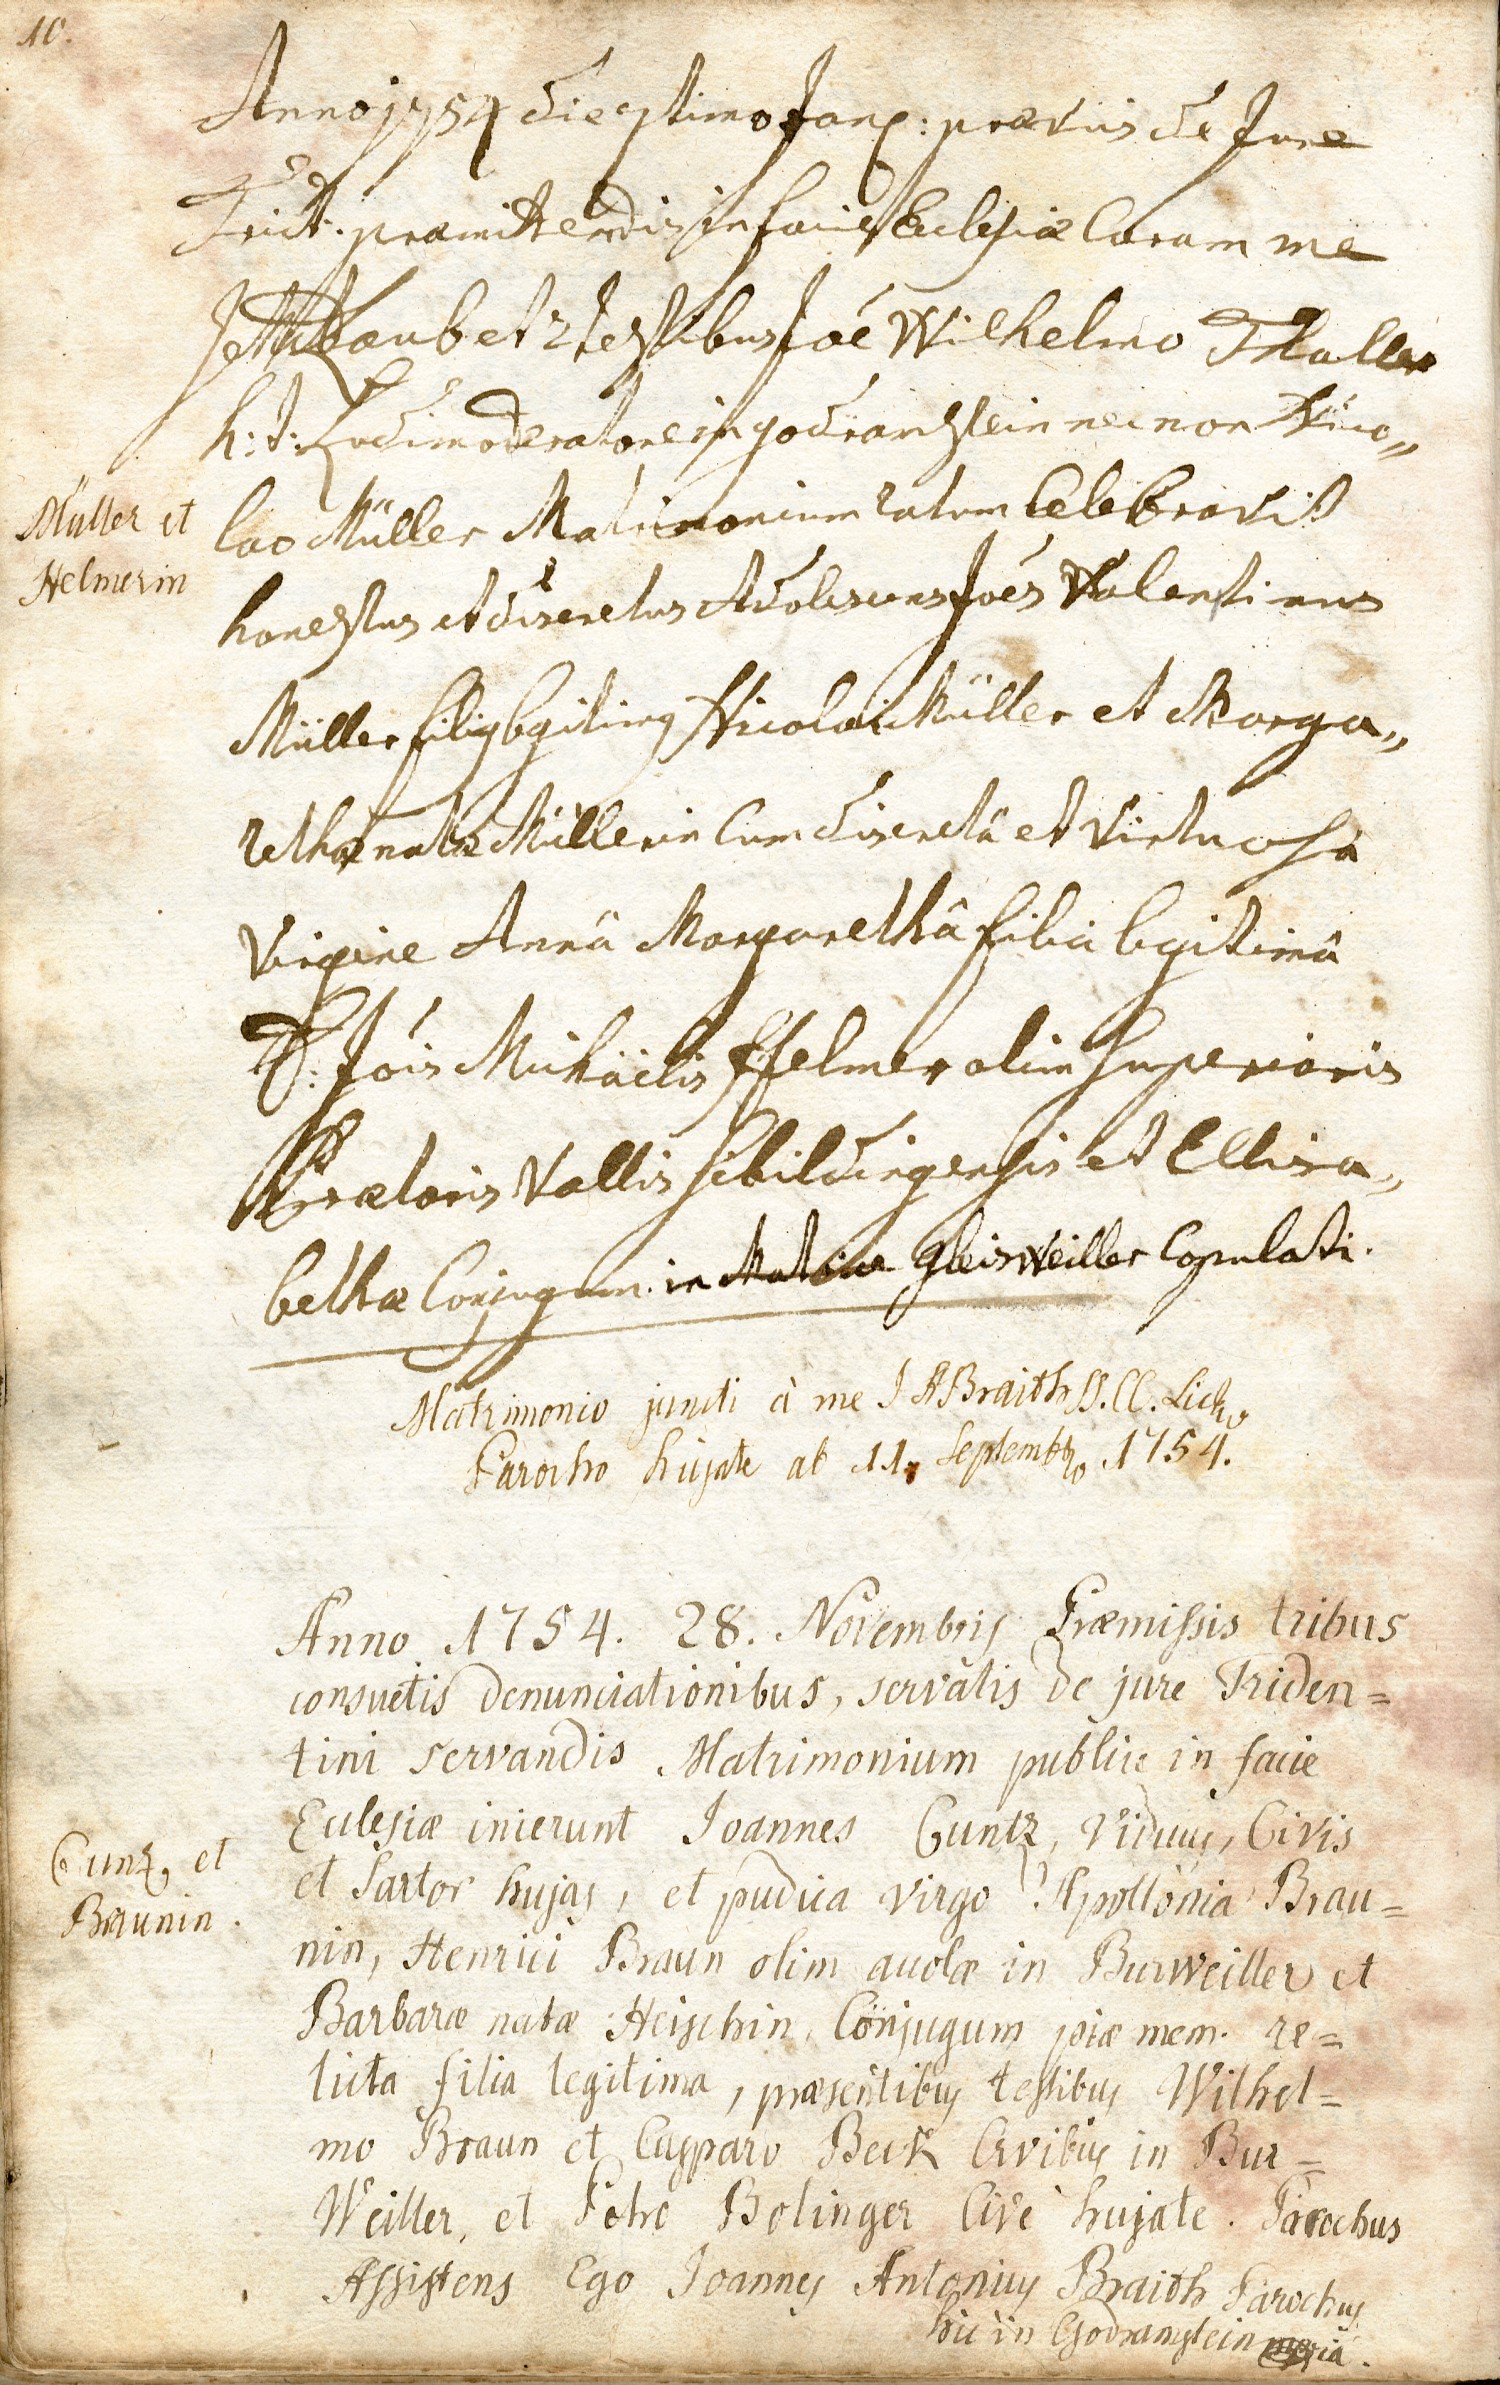 10.
Anno 1754 die 7timo Janr: præviis de Jure
Trid: præmittendis in facie Ecclesiæ Coram me
et 2 testibus Joë Wilhelmo Thaller
h: t: Ludimoderatore in godramstein nec non Nico„
lao Müller Matrimonium ratum Celebravit
Müller et
Helmerin
honestus et discretus Adolescens Joës Valentinus
Müller filius legitimus Nicolai Müller et Marga„
rethæ natæ Müllerin Cum discretâ et virtuosâ
Virgine Annâ Margarethâ filia legitimâ
D: Jois Michäelis Helmer olim Superioris
Prætoris Vallis Sibildingensis et Ellisa„
bethæ Conjugum. in Matrice Gleisweiller Copulati.
Matrimonio juncti à me J A Braith SS. CC. Lich
Parocho hujate ab 11. Septembr 1754.
Anno 1754. 28. Novembris Præmissis tribus
consuetis denunciationibus, servatis de jure Triden=
tini servandis Matrimonium publice in facie
Eclesiæ inierunt Joannes Cuntz, Viduus, Civis
Cuntz et
Braunin.
et Sartor hujas, et pudica virgo Apollonia Brau=
nin, Henrici Braun olim acolæ in Burweiller et
Barbaræ natæ Heischin, Conjugum piæ mem. re=
licta filia legitima, præsentibus testibus Wilhel=
mo Braun et Casparo Beck Civibus in Bur=
Weiller, et Petro Bolinger Cive hujate. Parochus
Assistens Ego Joannes Antonius Braith Parochus
hic in Godramstein